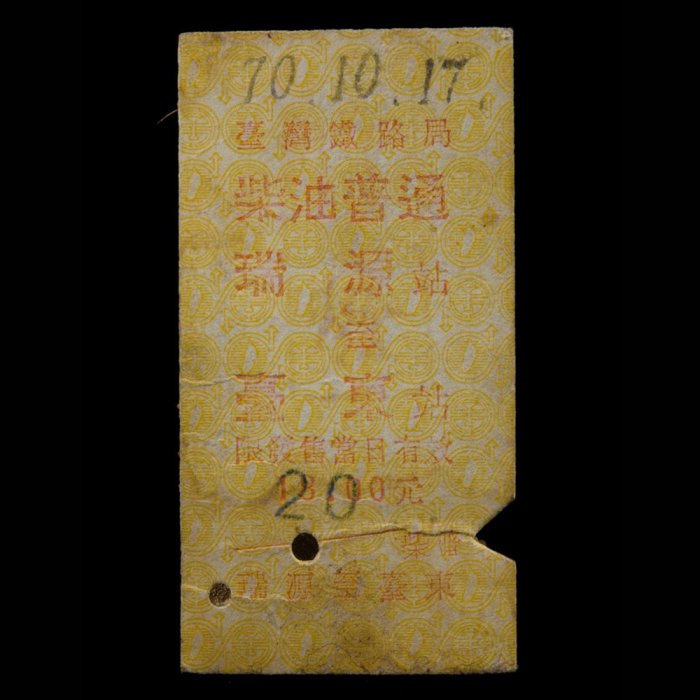 70.10.17.
臺灣鐵路局
柴油普通
瑞源站
至
臺東站
限發售當日有效
18.00元
20
柴普
瑞源至臺東